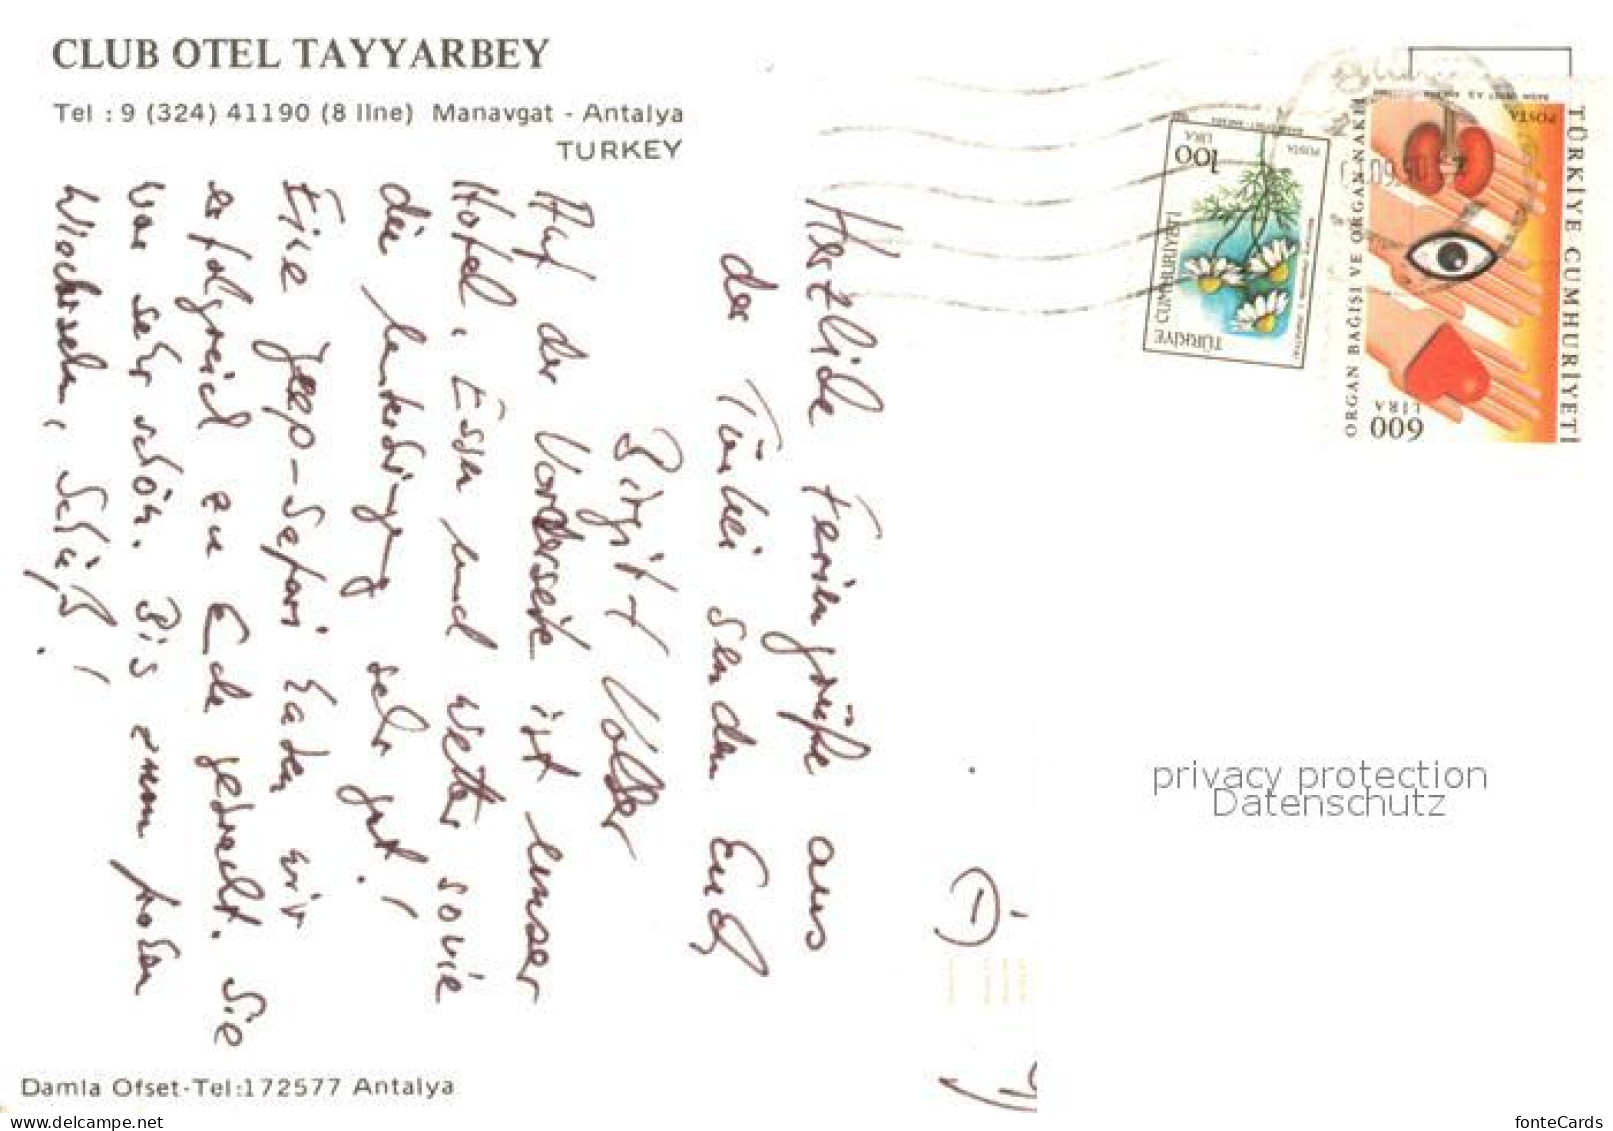 CLUB OTEL TAYYARBEY
Tel : 9 (324) 41190 (8 lIne) Manavgat - Antalya
TURKEY
Herzliche Feriengrüße aus
der Türkei senden Euch
Birgit + Volker
Auf der Vorderseite ist unser
Hotel, Essen und Wetter sowie
die Unterbringung sehr gut!
Eine Jeep-Safari haben wir
erfolgreich zu Ende gebracht. Sie
war sehr schön. Bis zum frohen
Wiedersehen, Tschüß!
Damla Ofset-Tel:172577 Antalya
100
LIRA
POSTA
TÜRKİYE CUMHURİYETİ
POSTA
TÜRKİYE CUMHURİYETİ
ORGAN BAĞIŞI VE ORGAN NAKLİ
600
LIRA
09.90
privacy protection
Datenschutz
delcampe.net
fonteCards